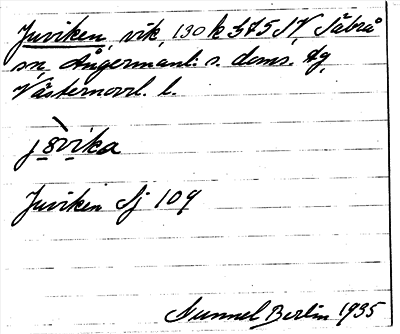 Juviken, vik, 130 k h A5 SV, Säbrå
sn, Ångermanl. s. doms. tg,
Västernorrl. l.
j8vika
Juviken Sj 109
Nunnel Berlin 1935